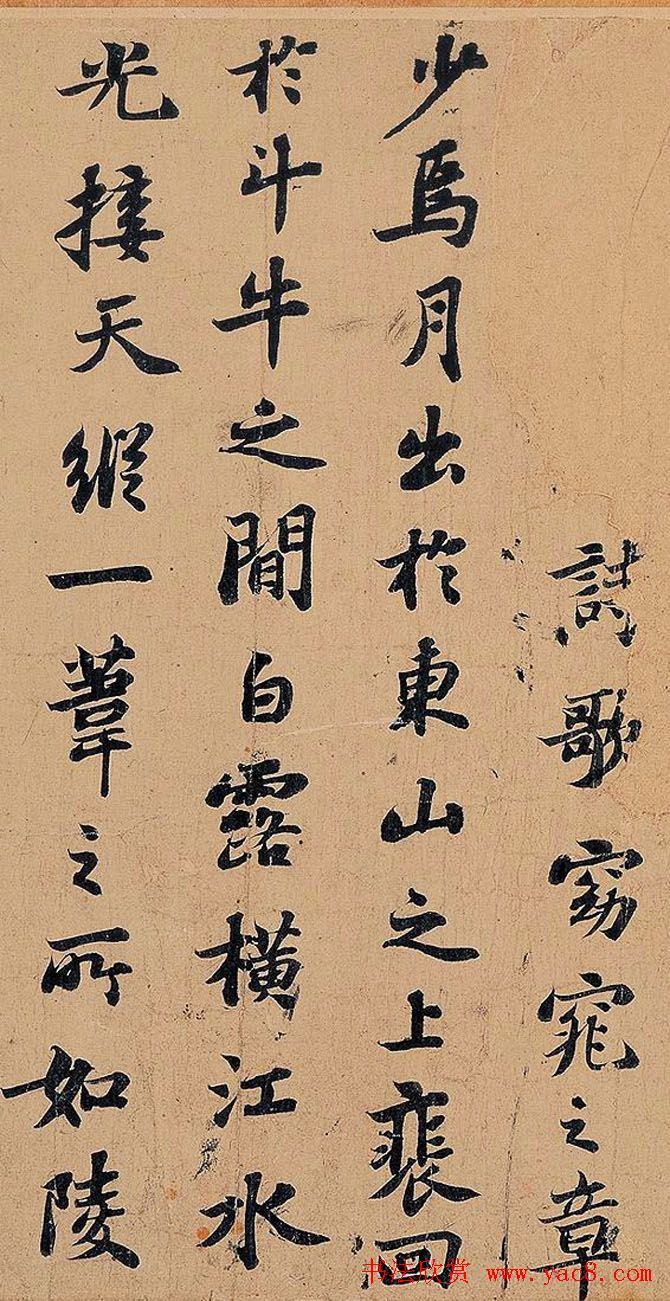 詩歌窈窕之章
少焉月出於東山之上裵回
於斗牛之間白露橫江水
光接天縱一葦之所如陵
书法欣赏 www.yac8.com